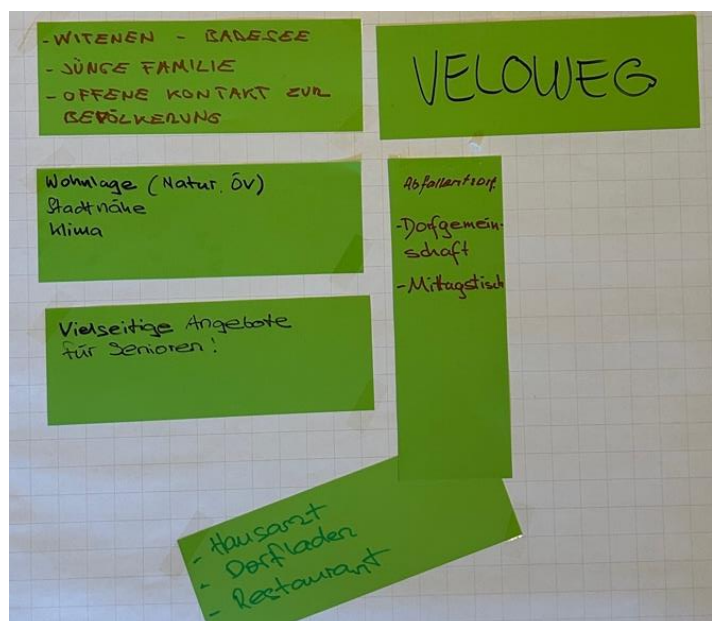 - WITENEN - BADESEE
- JÜNGE FAMILIE
- OFFENE KONTAKT ZUR
BEVÖLKERUNG
VELOWEG
Wohnlage (Natur, ÖV)
Stadtnähe
Klima
- Dorfgemein-
schaft
- Mittagstisch
Vielseitige Angebote
für Senioren!
- Hausarzt
- Dorfladen
- Restaurant